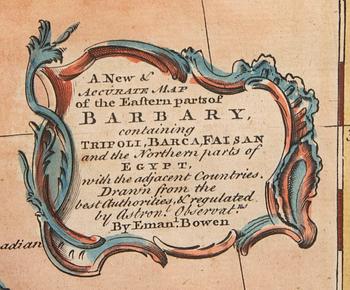 A New &
ACCURATE MAP
of the Eastern parts of
BARBARY,
containing
TRIPOLI, BARCA, FAISAN
and the Northern parts of
EGYPT,
with the adjacent Countries.
Drawn from the
best Authorities, & regulated
by Astron.l Observat.ns
By Eman. Bowen
adian